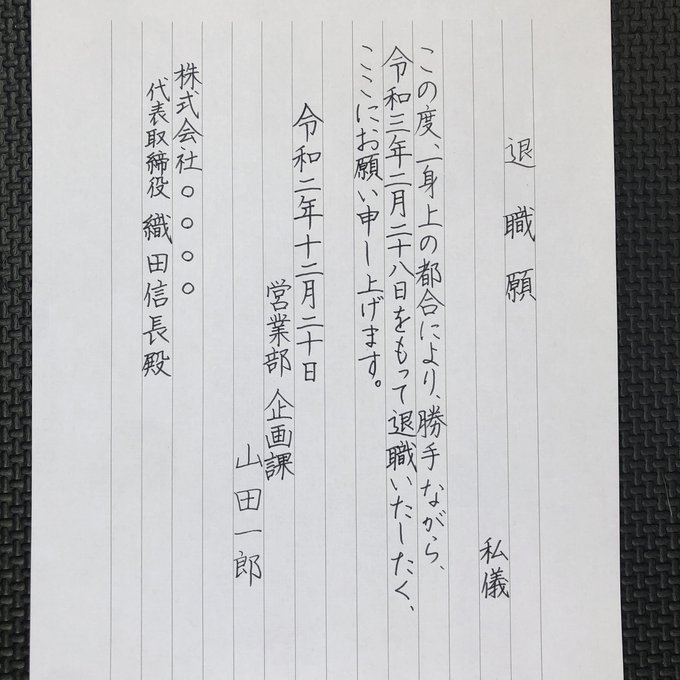 退職願
私儀
この度、一身上の都合により、勝手ながら、
令和三年二月二十八日をもって退職いたしたく、
ここにお願い申し上げます。
令和二年十二月二十日
営業部 企画課
山田一郎
株式会社○○○○
代表取締役 織田信長殿